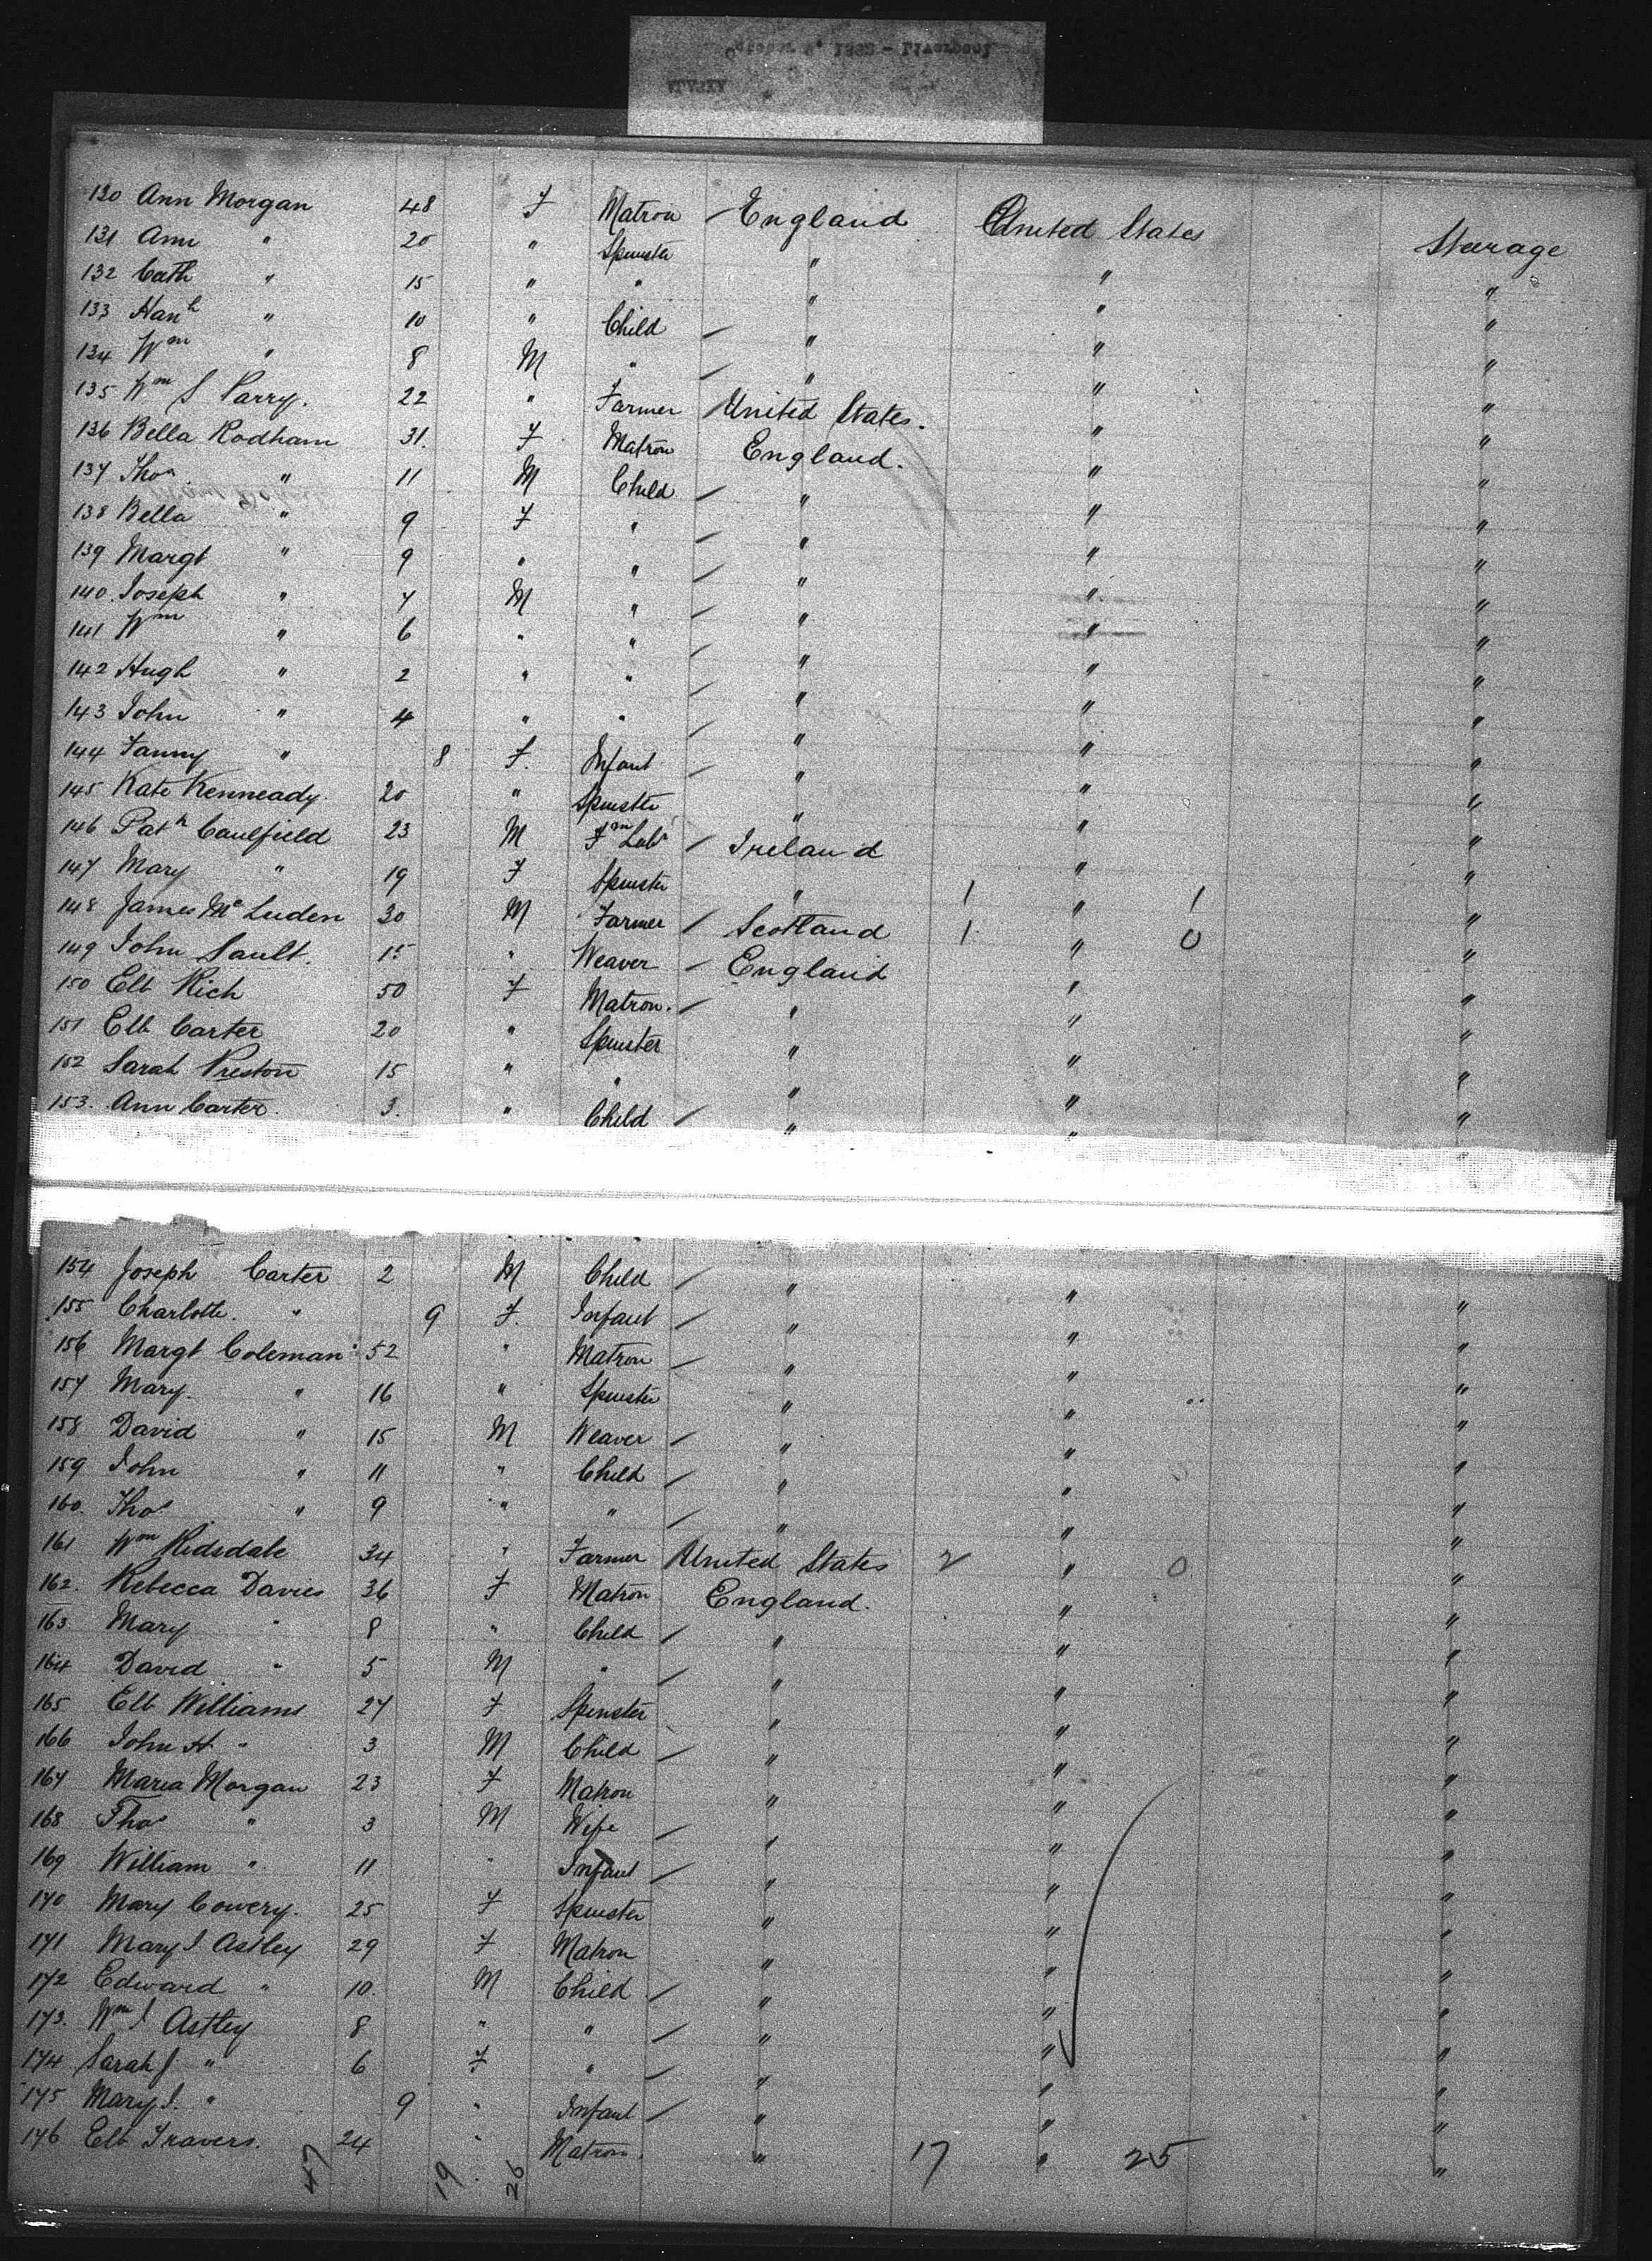 October 3, 1882 - Liverpool
130 Ann Morgan 48 F Matron England United States Steerage
131 Ann " 20 " Spinster " " "
132 Cath " 15 " " " " "
133 Hanh " 10 " Child " " "
134 Wm " 8 M " " " "
135 Wm S Parry. 22 " Farmer United States. " "
136 Bella Rodham 31. F Matron England. " "
137 Thos " 11 M Child " " "
138 Bella " 9 F " " " "
139 Margt " 9 " " " " "
140. Joseph " 7 M " " " "
141 Wm " 6 " " " " "
142 Hugh " 2 " " " " "
143 John " 4 " " " " "
144 Fanny " 8 F. Infant " " "
145 Kate Kenneady. 20 " Spinster " " "
146 Patk Caulfield 23 M Fm Labr Ireland " "
147 Mary " 19 F Spinster " 1 " 1 "
148 James Mc Luden 30 M Farmer Scotland 1 " 0 "
149 John Sault. 15 " Weaver England " "
150 Elb Rich 50 F Matron. " " "
151 Elb Carter 20 " Spinster " " "
152 Sarah Preston 15 " " " " "
153. Ann Carter. 3. " Child " " "
154 Joseph Carter 2 M Child " " "
155 Charlotte. " 9 F. Infant " " "
156 Margt Coleman 52 " Matron " " "
157 Mary. " 16 " Spinster " " "
158 David " 15 M Weaver " " "
159 John " 11 " Child " " "
160. Thos " 9 " " " " "
161 Wm Ridsdale 34 " Farmer United States 2 " 0 "
162. Rebecca Davies 36 F Matron England. " "
163 Mary " 8 " Child " " "
164 David " 5 M " " " "
165 Elb Williams 27 F Spinster " " "
166 John H " 3 M Child " " "
167 Maria Morgan 23 F Matron " " "
168 Thos " 3 M Wife " " "
169 William " 11 " Infant " " "
170 Mary Cowery. 25 F Spinster " " "
171 Mary J Astley 29 F Matron " " "
172 Edward " 10. M Child " " "
173. Wm J Astley 8 " " " " "
174 Sarah J " 6 F " " " "
175 Mary J. " 9 " Infant " " "
176 Elb Travers. 24 " Matron. " 17 " 25 "
47 19 26